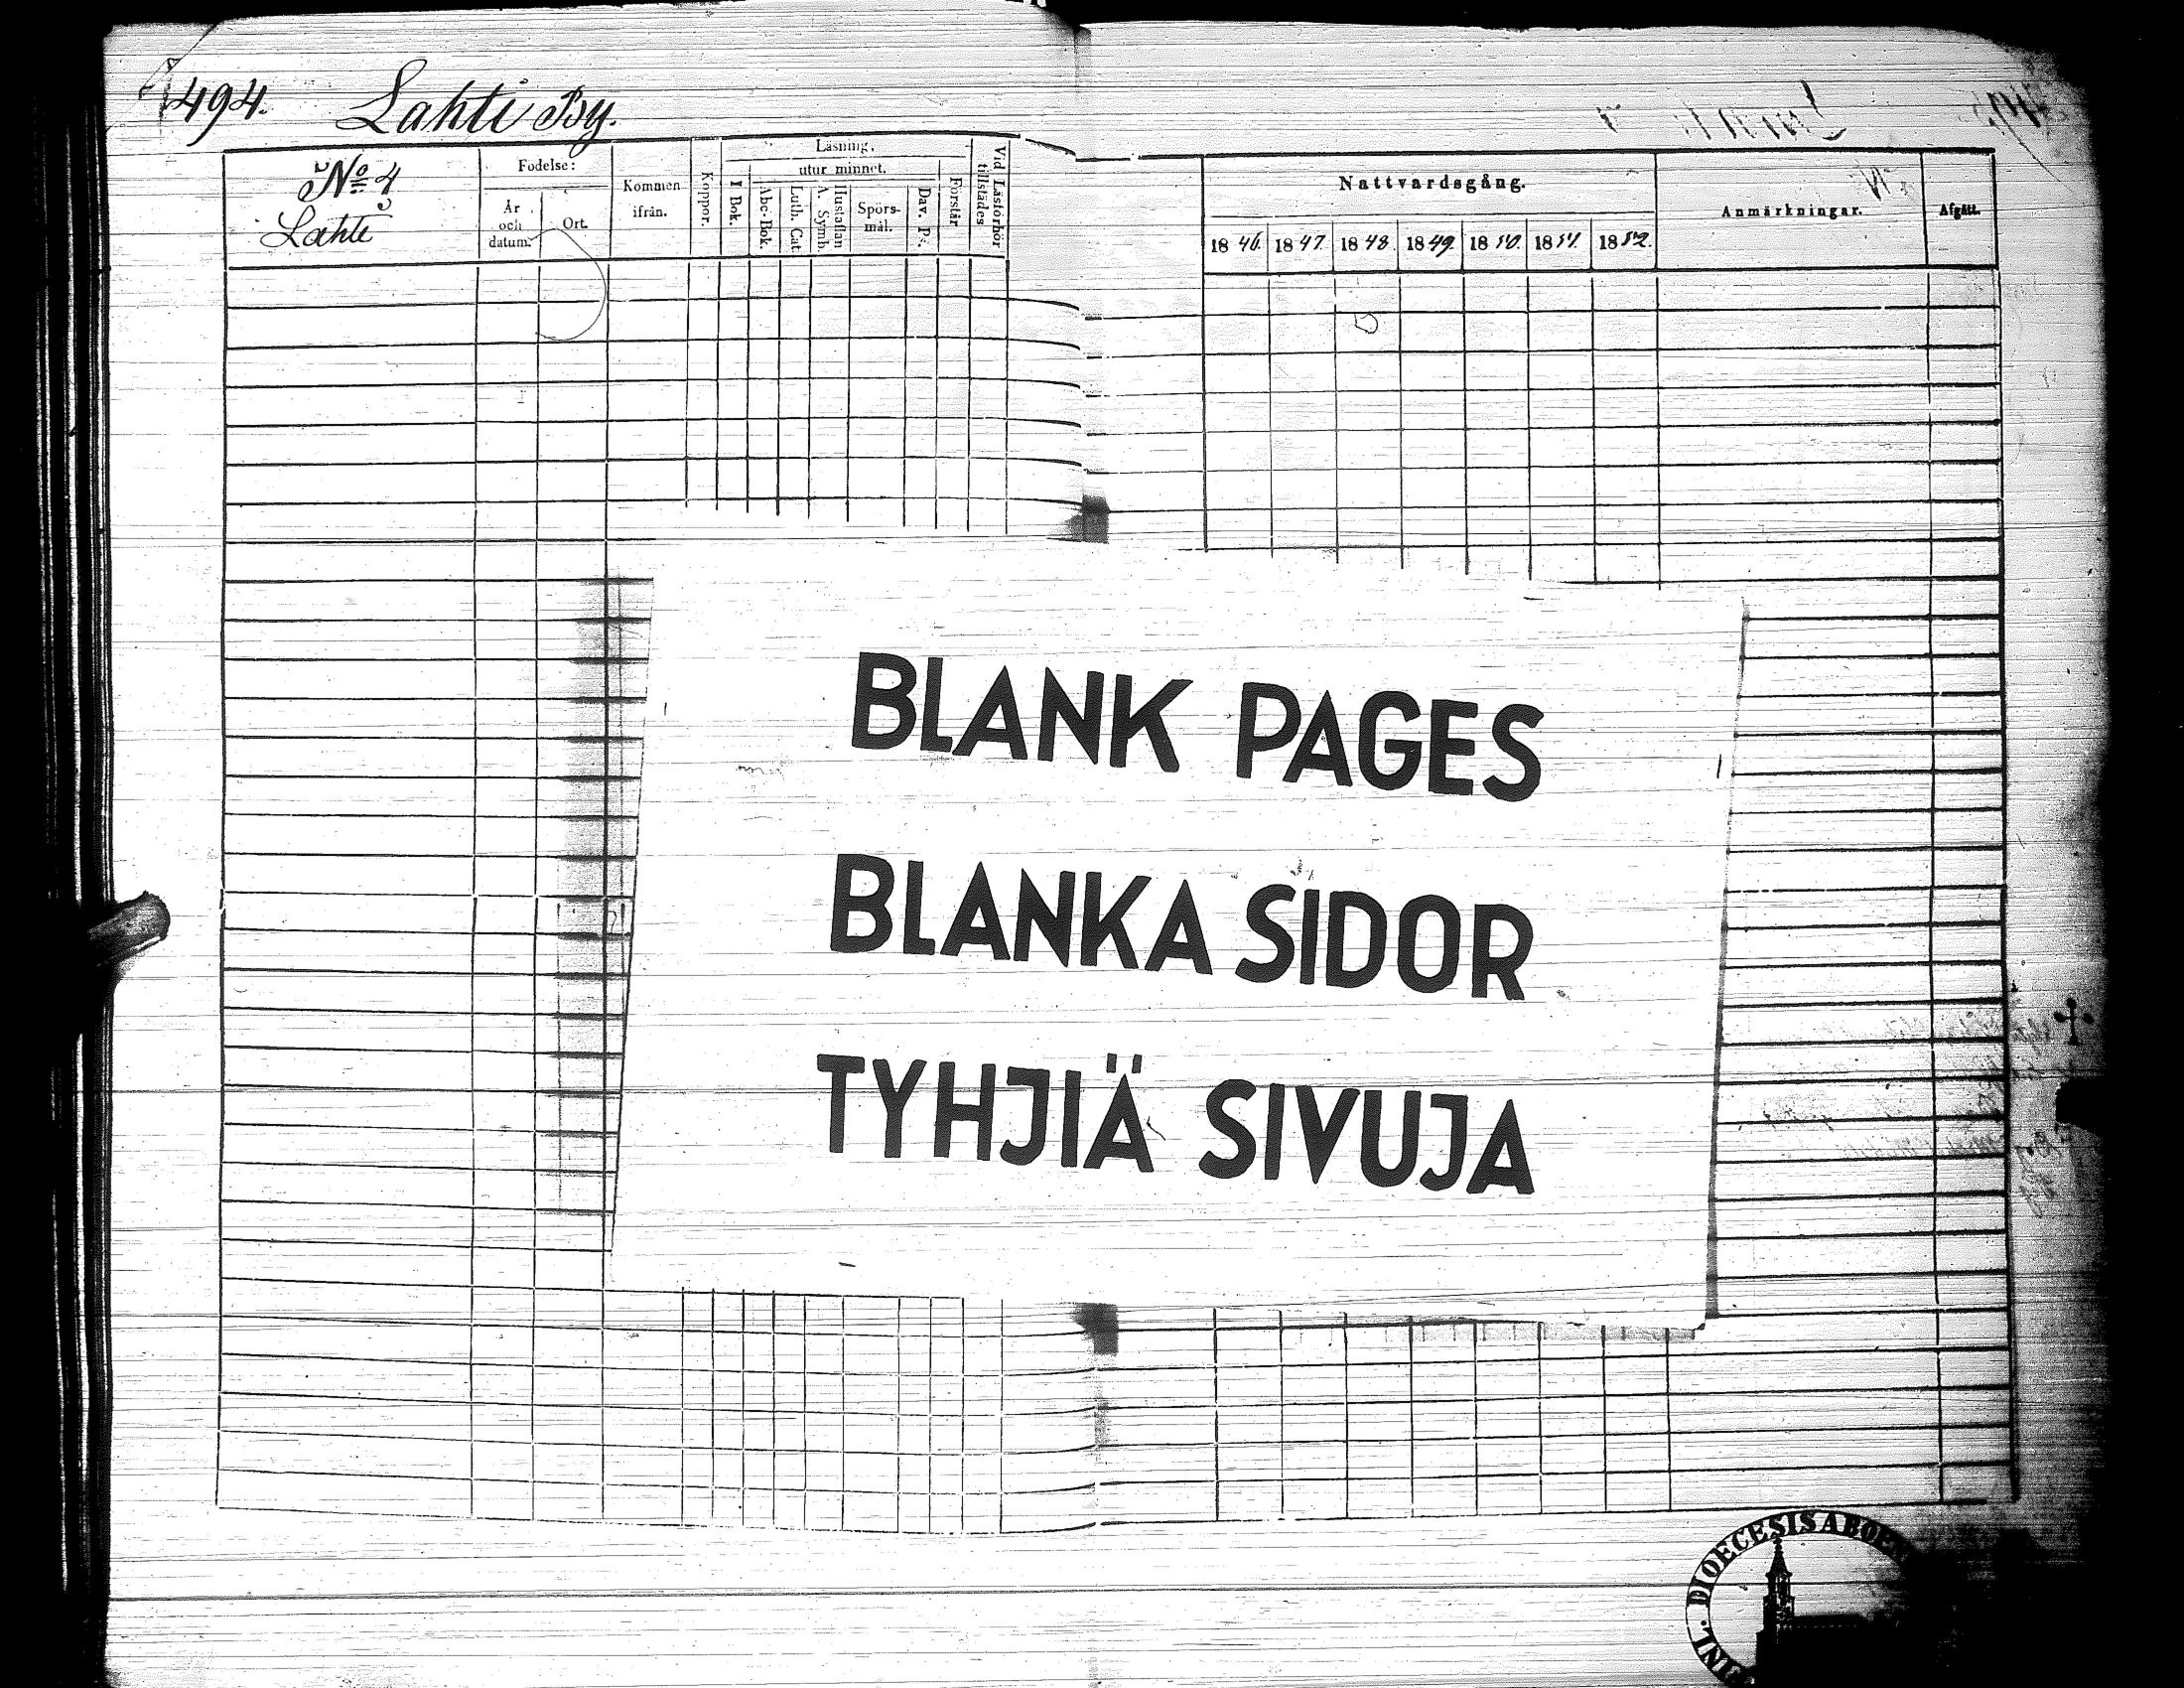 494. Lahti By.
Läsning.
Nattvardsgång.
Anmärkningar.
Afgått.
No 4
Lahti
Födelse:
År och datum.
Ort.
Kommen ifrån.
Koppor.
I Bok.
utur minnet.
Abc-Bok.
Luth. Cat.
A. Symb.
Hustaflan
Spörs-mål.
Dav. Ps.
Förstår
Vid Läsförhör tillstädes
1846. 1847. 1848. 1849. 1850. 1851. 1852.
BLANK PAGES
BLANKA SIDOR
TYHJIÄ SIVUJA
DIOECESIS ABOE